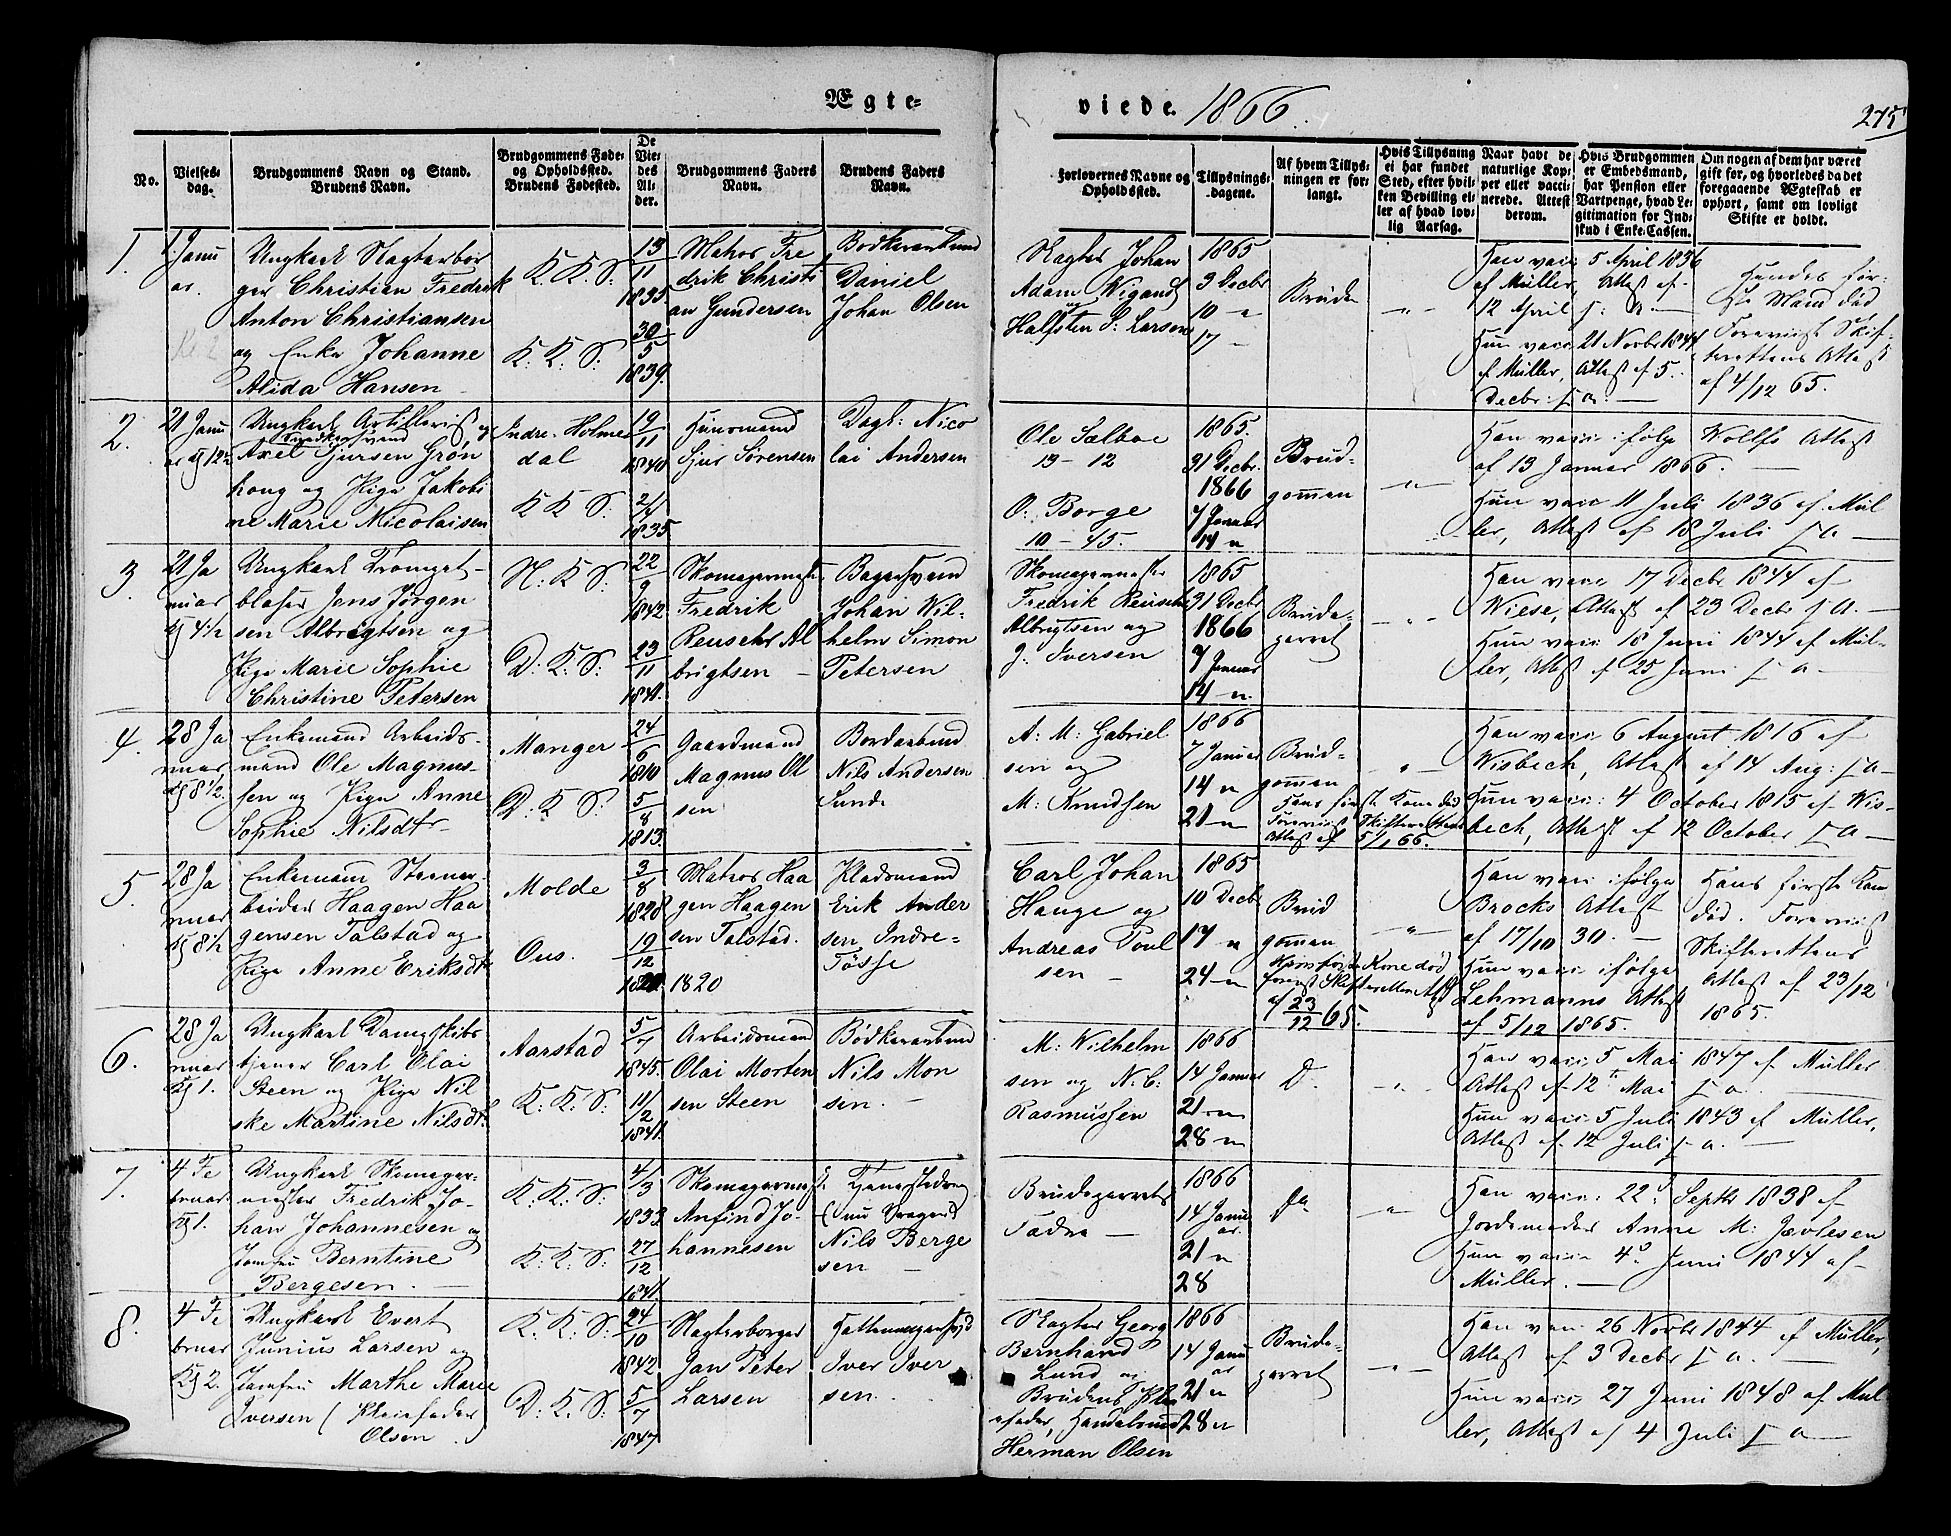 Ægte=
viede. 1866.
275
No.
Vielses=
dag.
Brudgommens Navn og Stand.
Brudens Navn.
Brudgommens Føde=
og Opholdssted.
Brudens Fødested.
De
Vie=
des
Al=
der.
Brudgommens Faders
Navn.
Brudens Faders
Navn.
Forlovernes Navne og
Opholdssted.
Tillysnings=
dagene.
Af hvem Tillys=
ningen er for=
langt.
Hvis Tillysning
ei har fundet
Sted, efter hvil=
ken Bevilling el=
ler af hvad lov=
lig Aarsag.
Naar havt de
naturlige Kop=
per eller vacci=
nerede. Attest
derom.
Hvis Brudgommen
er Embedsmand,
har Pension eller
Vartpenge, hvad Le=
gitimation for Ind=
skud i Enke=Cassen.
Om nogen af dem har været
gift før, og hvorledes da det
foregaaende Ægteskab er
ophørt, samt om lovligt
Skifte er holdt.
1.
1 Janu
ar.
Ungkarl Slagterbor
ger Christian Fredrik
Anton Christiansen
og Enke Johanne
Alida Hansen
K. K. S:
K: K: S:
13/11 1835
30/5 1839.
Matros Fre
drik Christi
an Gundersen
Bødkersvend
Daniel
Johan Olsen
Slagter Johan
Adam Wigand
og
Halfsten P: Larsen
1865
3 Decbr
10 - "
17 -
Brude
- " -
Han vacc: 5 April 1836
af Müller, Attest af
12 April s: A. -
Hun vacc: 21 Novbr 1844
af Müller, Attest af 5.
Decbr: s a. -
Hendes før=
ste Mand død
Foreviist Skif=
terettens Attest
af 4/12 65.
2.
21 Janu
ar
Ungkarl Artillerist og
Axel Sjursen Grøn
houg og Pige Jakobi
ne Marie Nicolaisen
Indre-Holme
dal
K K S:
19/11 1840
2/4 1835.
Huusmand
Sjur Sørensen
Dagl: Nico
lai Andersen
Ole Salboe
13 - 12
O: Borge
10 - 45.
1865.
31 Decbr.
1866
7 Januar
14 "
Brud=
gommen
- " -
Han vacc: ifølge Wolffs Attest
af 13 Januar 1866. -
Hun vacc 11 Juli 1836 af Mül
ler, Attest af 18 Juli s a -
3.
21 Ja
nuar
Kl 4½
Ungkarl Trompet-
blæser Jens Jørgen
sen Albrigtsen og
Pige Marie Sophie
Christine Petersen
N: K S:
D: K: S:
22/9 1842.
23/11 1841.
Skomagermester
Fredrik
Reusch Al
brigtsen -
Bagersvend
Johan Wil=
helm Simon
Petersen
Skomagermester
Fredrik Reusch
Albrigtsen og
J: Iversen
1865
31 Decbr
1866
7 Januar
14 - "
Brude=
parret
- " -
Han vacc 17 Decbr 1844 af
Wiese, Attest af 23 Decbr s A. -
Hun vacc: 18 Juni 1844 af Mül=
ler, Attest af 25 Juni s a -
4.
28 Ja
nuar
Kl 8½.
Enkemand Arbeids-
mand Ole Magnus-
sen og Pige Anne
Sophie Nilsdtr-
Manger
D: K: S:
24/6 1810
5/8 1813.
Gaardmand
Magnus Ol
sen
Bordarbeid
Nils Andersen
Sunde
A: M: Gabriel
sen og
M: Knudsen
1866
7 Januar
14 "
21 - "
Brud=
gommen
Hans første Kone død
Foreviist Skifterettens
Attest af 5/1 66.
- " -
Han vacc: 6 August 1816 af
Wisbech, Attest af 14 Aug: s a -
Hun vacc: 4 October 1815 af Wis=
bech, Attest af 12 October s a -
5.
28 Ja
nuar
Kl 8½
Enkemand Steenar-
beider Haagen Haa
gensen Talstad og
Pige Anne Eriksdtr
Molde
Ous.
3/8 1828
19/12
1820
Matros Haa
gen Haagen
sen Talstad.
Pladsmand
Erik Ander
sen Indre=
Tøsse
Carl Johan
Hauge og
Andreas Poul
sen -
1865
10 Decbr
17 "
24 - "
Brud
gommen
- " -
af 23/12 65.
Han vacc: ifølge
Brocks Attest
af 17/10 30. -
Hun vacc: ifølge
Lehmanns Attest
af 5/12 1865.
Hans første Kone
død. Foreviist
Skifterettens
Attest af 23/12
1865.
6.
28 Ja
nuar
Kl 1.
Ungkarl Dampskibs
tjener Carl Olai
Steen og Pige Nil
ske Martine Nilsdtr
Aarstad
K: K: S:
5/7 1845.
11/2 1841.
Arbeidsmand
Olai Morten
sen Steen
Bødkersvend
Nils Mon
sen. -
M: Wilhelm
sen og N. C:
Rasmussen
1866
14 Januar
21 - "
28 - "
D.
- " -
Han vacc: 5 Mai 1847 af Müller
Attest af 12te Mai s a. -
Hun vacc: 5 Juli 1843 af Müller,
Attest af 12 Juli s a. -
7.
4 Fe
bruar
Kl 1.
Ungkarl Skomager-
mester Fredrik Jo-
han Johannesen og
Jomfru Berntine
Bergesen. -
K: K: S:
K: K: S:
4/3 1833
27/12 1841.
Skomagermest
Anfind Jo-
hannesen
Nils Berge
sen -
Brudeparrets
Fædre -
1866
14 Janu
ar.
21 "
28
Do
- " -
Han vacc: 22d Septbr 1838 af
Jordemoder Anne M: Jævlesen
Hun vacc: 4d Juni 1844 af
Müller. -
8.
4 Fe
bruar
Kl 2.
Ungkarl Evert
Junius Larsen og
Jomfru Marthe Marie
Iversen (Pleiefader
Olsen.)
K: K: S:
D: K: S:
24/10 1842
5/7 1847
Slagterborger
Jan Peter
Larsen
Hattemagersvd
Iver Iver
sen. -
Slagter Georg
Bernhard
Lund og
Brudens Plei
efader, Handelsmand
Herman Olsen
1866
14 Janu
ar
21 "
28 "
Brude=
parret
- " -
Han vacc 26 Novbr 1844 af Müller,
Attest af 3 Decbr s a. -
Hun vacc: 27 Juni 1848 af Mül
ler, Attest af 4 Juli s a -